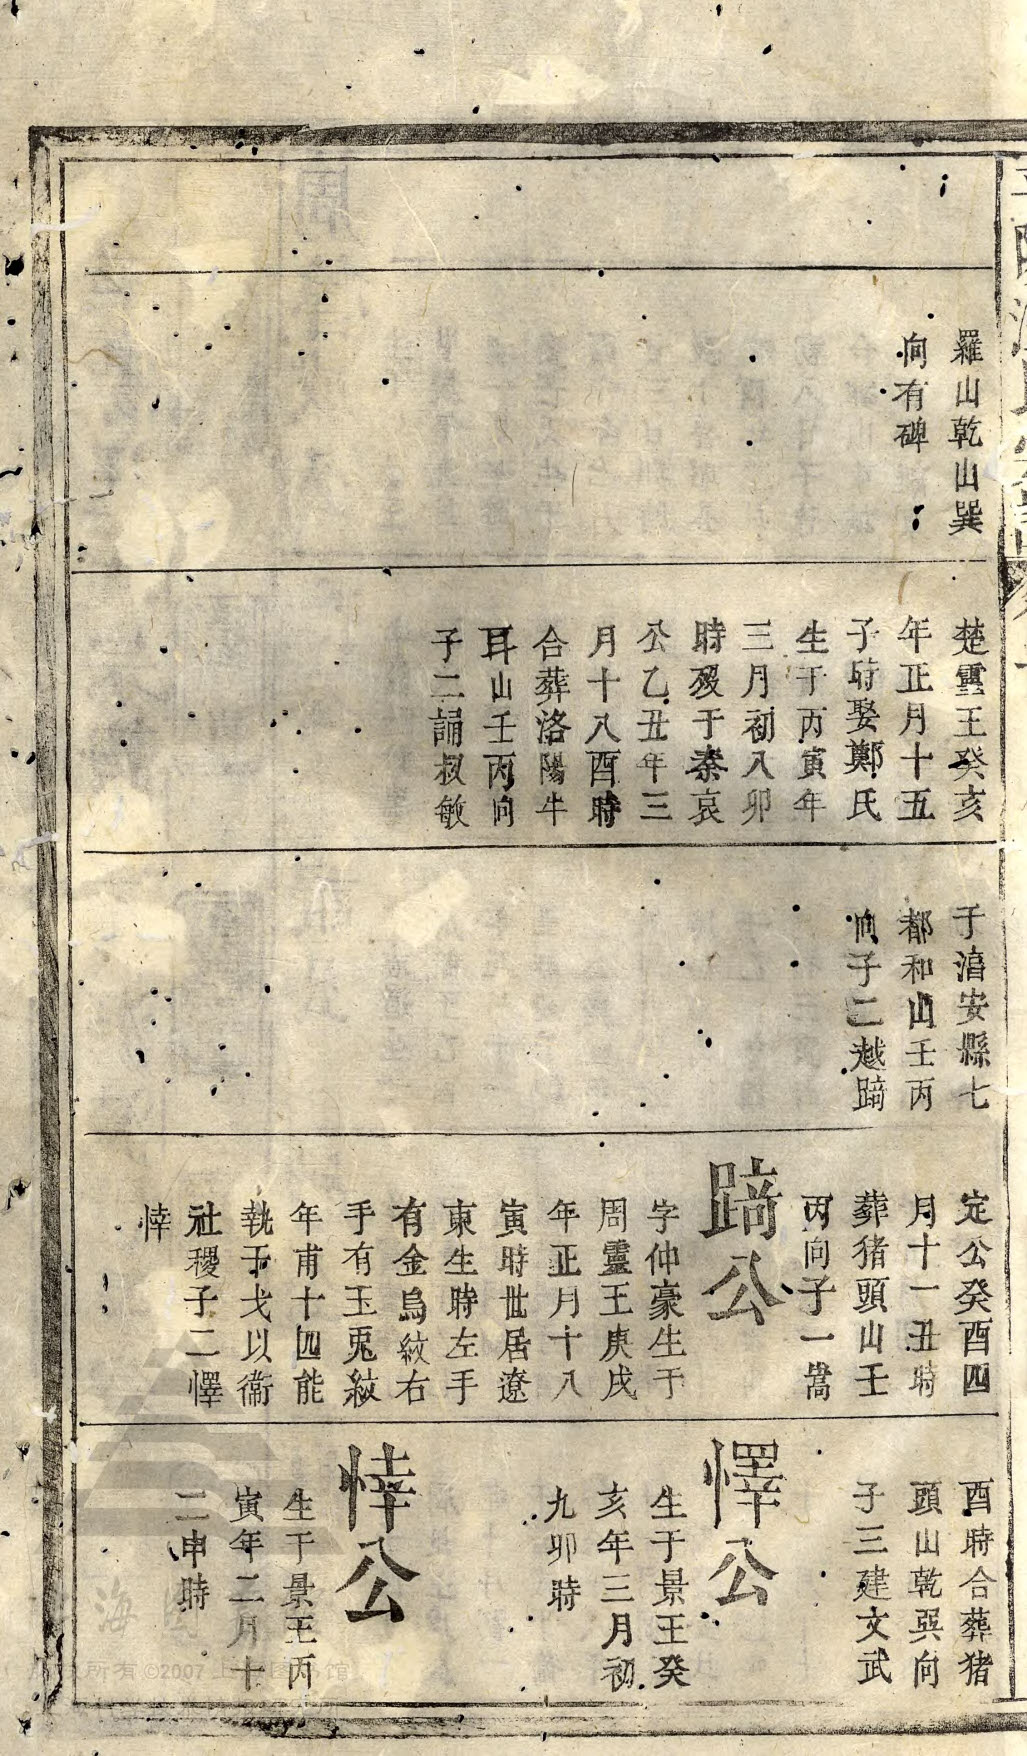 羅山乾山巽
向有碑
楚靈王癸亥
年正月十五
子時娶鄭氏
生于丙寅年
三月初八卯
時歿于秦哀
公乙丑年三
月十八酉時
合葬洛陽牛
耳山壬丙向
子二誦叔敏
于淯安縣七
都和山壬丙
向子二越蹄
定公癸酉四
月十一丑時
葬猪頭山壬
丙向子一嵩
蹄公
字仲豪生于
周靈王庚戌
年正月十八
寅時世居遼
東生時左手
有金烏紋右
手有玉兎紋
年甫十四能
執于戈以衞
社稷子二懌
悻
酉時合葬猪
頭山乾巽向
子三建文武
懌公
生于景王癸
亥年三月初
九卯時
悻公
生于景王丙
寅年二月十
二申時
所有©2007 上